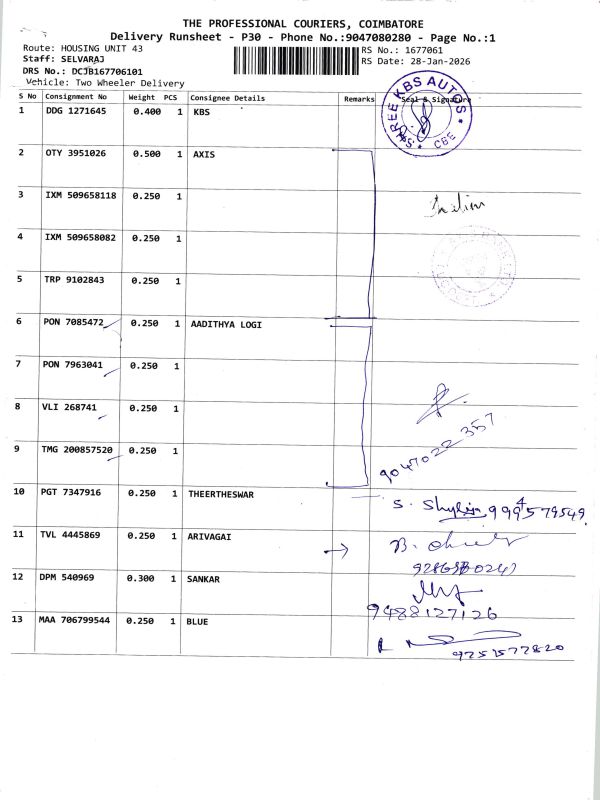 THE PROFESSIONAL COURIERS, COIMBATORE
Delivery Runsheet - P30 - Phone No.:9047080280 - Page No.:1
Route: HOUSING UNIT 43
Staff: SELVARAJ
DRS No.: DCJB167706101
Vehicle: Two Wheeler Delivery
RS No.: 1677061
RS Date: 28-Jan-2026
S No Consignment No Weight PCS Consignee Details Remarks Seal & Signature
1 DDG 1271645 0.400 1 KBS
SHREE KBS AUTOS * CBE *
2 OTY 3951026 0.500 1 AXIS
3 IXM 509658118 0.250 1
4 IXM 509658082 0.250 1
5 TRP 9102843 0.250 1
6 PON 7085472 0.250 1 AADITHYA LOGI
7 PON 7963041 0.250 1
8 VLI 268741 0.250 1
9 TMG 200857520 0.250 1
9047022 357
10 PGT 7347916 0.250 1 THEERTHESWAR
11 TVL 4445869 0.250 1 ARIVAGAI
12 DPM 540969 0.300 1 SANKAR
9488127126
13 MAA 706799544 0.250 1 BLUE